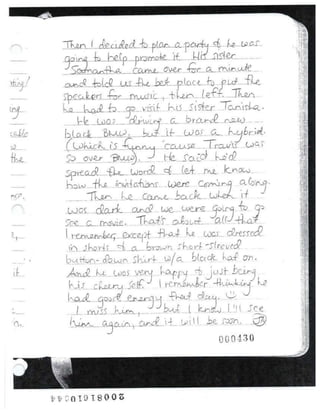 Then I decided to plan a party & he was
going to help promote it. His sister
Samantha came over for a minute
and told us the best place to put the
speakers for music, then left. Then
he had to go visit his sister Tanisha.
He was driving a brand new
black BMW, but it was a hybrid.
(Which is funny 'cause Travis was
so over BMWs). He said he'd
spread the word & let me know
how the invitations were coming along.
Then he came back when it
was dark and we were going to go
see a movie. That's about all that
I remember, except that he was dressed
in shorts & a brown short-sleeved
button-down shirt w/a black hat on.
And he was very happy & just being
his cheery self. I remember thinking he
had good energy that day. ☺
I miss him, but I know I'll see
him again, and it will be soon.
000430
the
it
2008161004